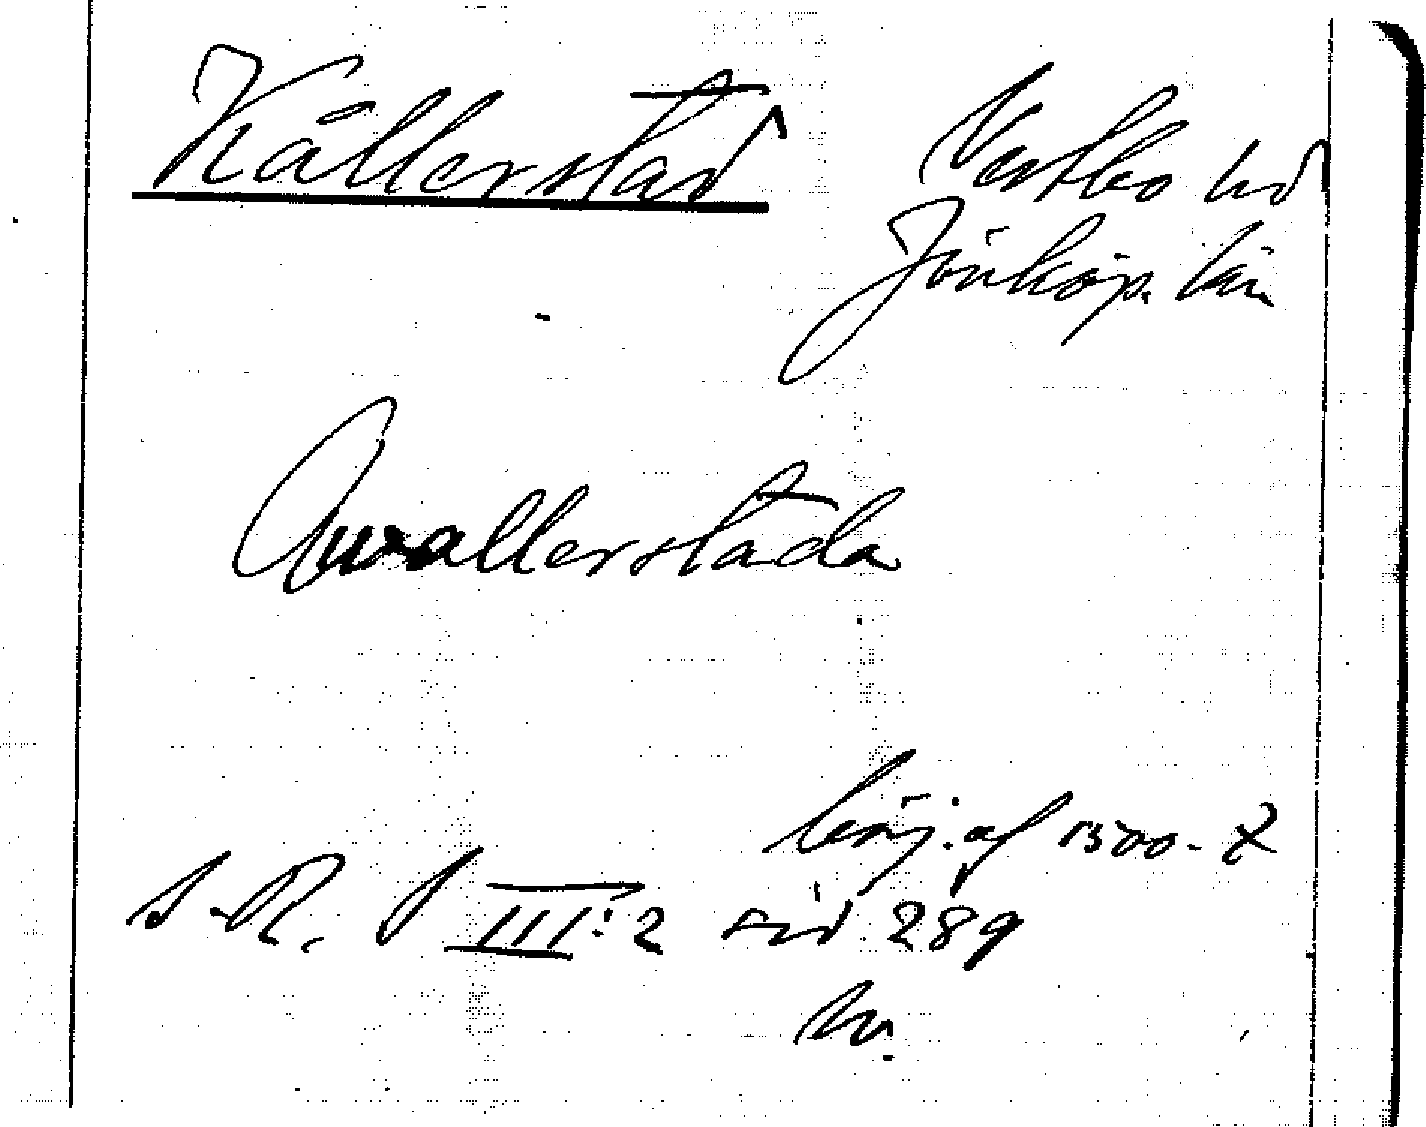 Kållerstad Vestbo hd
Jönköp. län
Qwallerstada
börj. af 1500-t
S. R. P III:2 sid 289